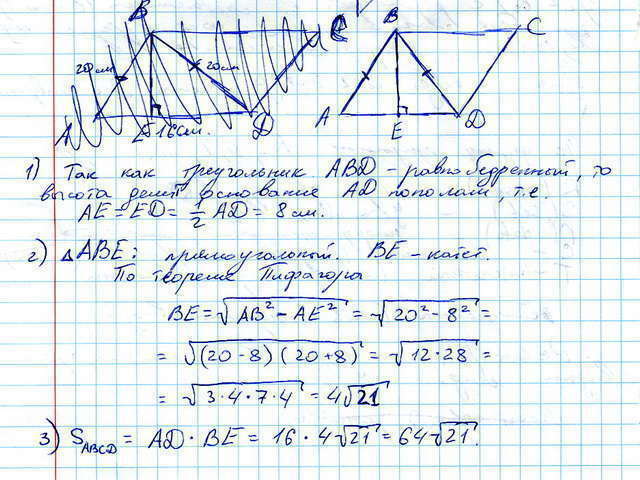 B C B C
20см 20см
A E 16см. D A E D
1) Так как треугольник ABD - равнобедренный, то
высота делит основание AD пополам, т.е.
AE = ED = 1/2 AD = 8 см.
2) △ABE: прямоугольный. BE - катет.
По теореме Пифагора
BE = √(AB² - AE²) = √(20² - 8²) =
= √((20 - 8)(20 + 8)) = √(12·28) =
= √(3·4·7·4) = 4√21
3) S_ABCD = AD · BE = 16 · 4√21 = 64√21.